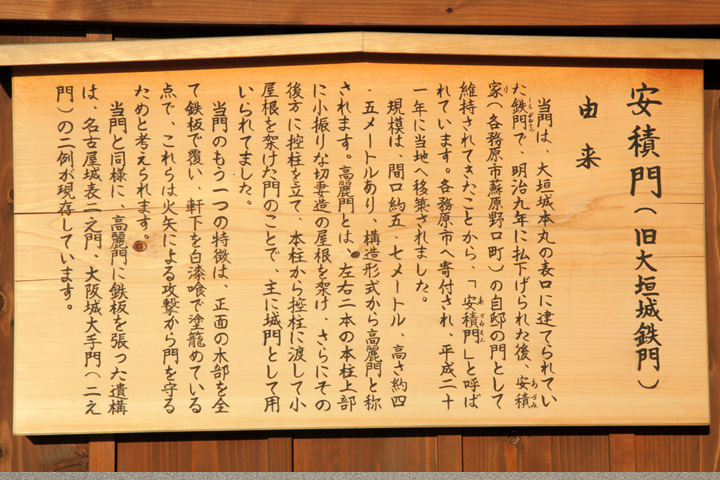 安積門(旧大垣城鉄門)
由来
当門は、大垣城本丸の表口に建てられてい
た鉄門で、明治九年に払下げられた後、安積
家(各務原市蘇原野口町)の自邸の門として
維持されてきたことから、「安積門」と呼ば
れています。各務原市へ寄付され、平成二十
一年に当地へ移築されました。
規模は、間口約五・七メートル、高さ約四
・五メートルあり、構造形式から高麗門と称
されます。高麗門とは、左右二本の本柱上部
に小振りな切妻造の屋根を架け、さらにその
後方に控柱を立て、本柱から控柱に渡して小
屋根を架けた門のことで、主に城門として用
いられてました。
当門のもう一つの特徴は、正面の木部を全
て鉄板で覆い、軒下を白漆喰で塗籠めている
点で、これらは火矢による攻撃から門を守る
ためと考えられます。
当門と同様に、高麗門に鉄板を張った遺構
は、名古屋城表二之門、大阪城大手門(二え
門)の二例が現存しています。